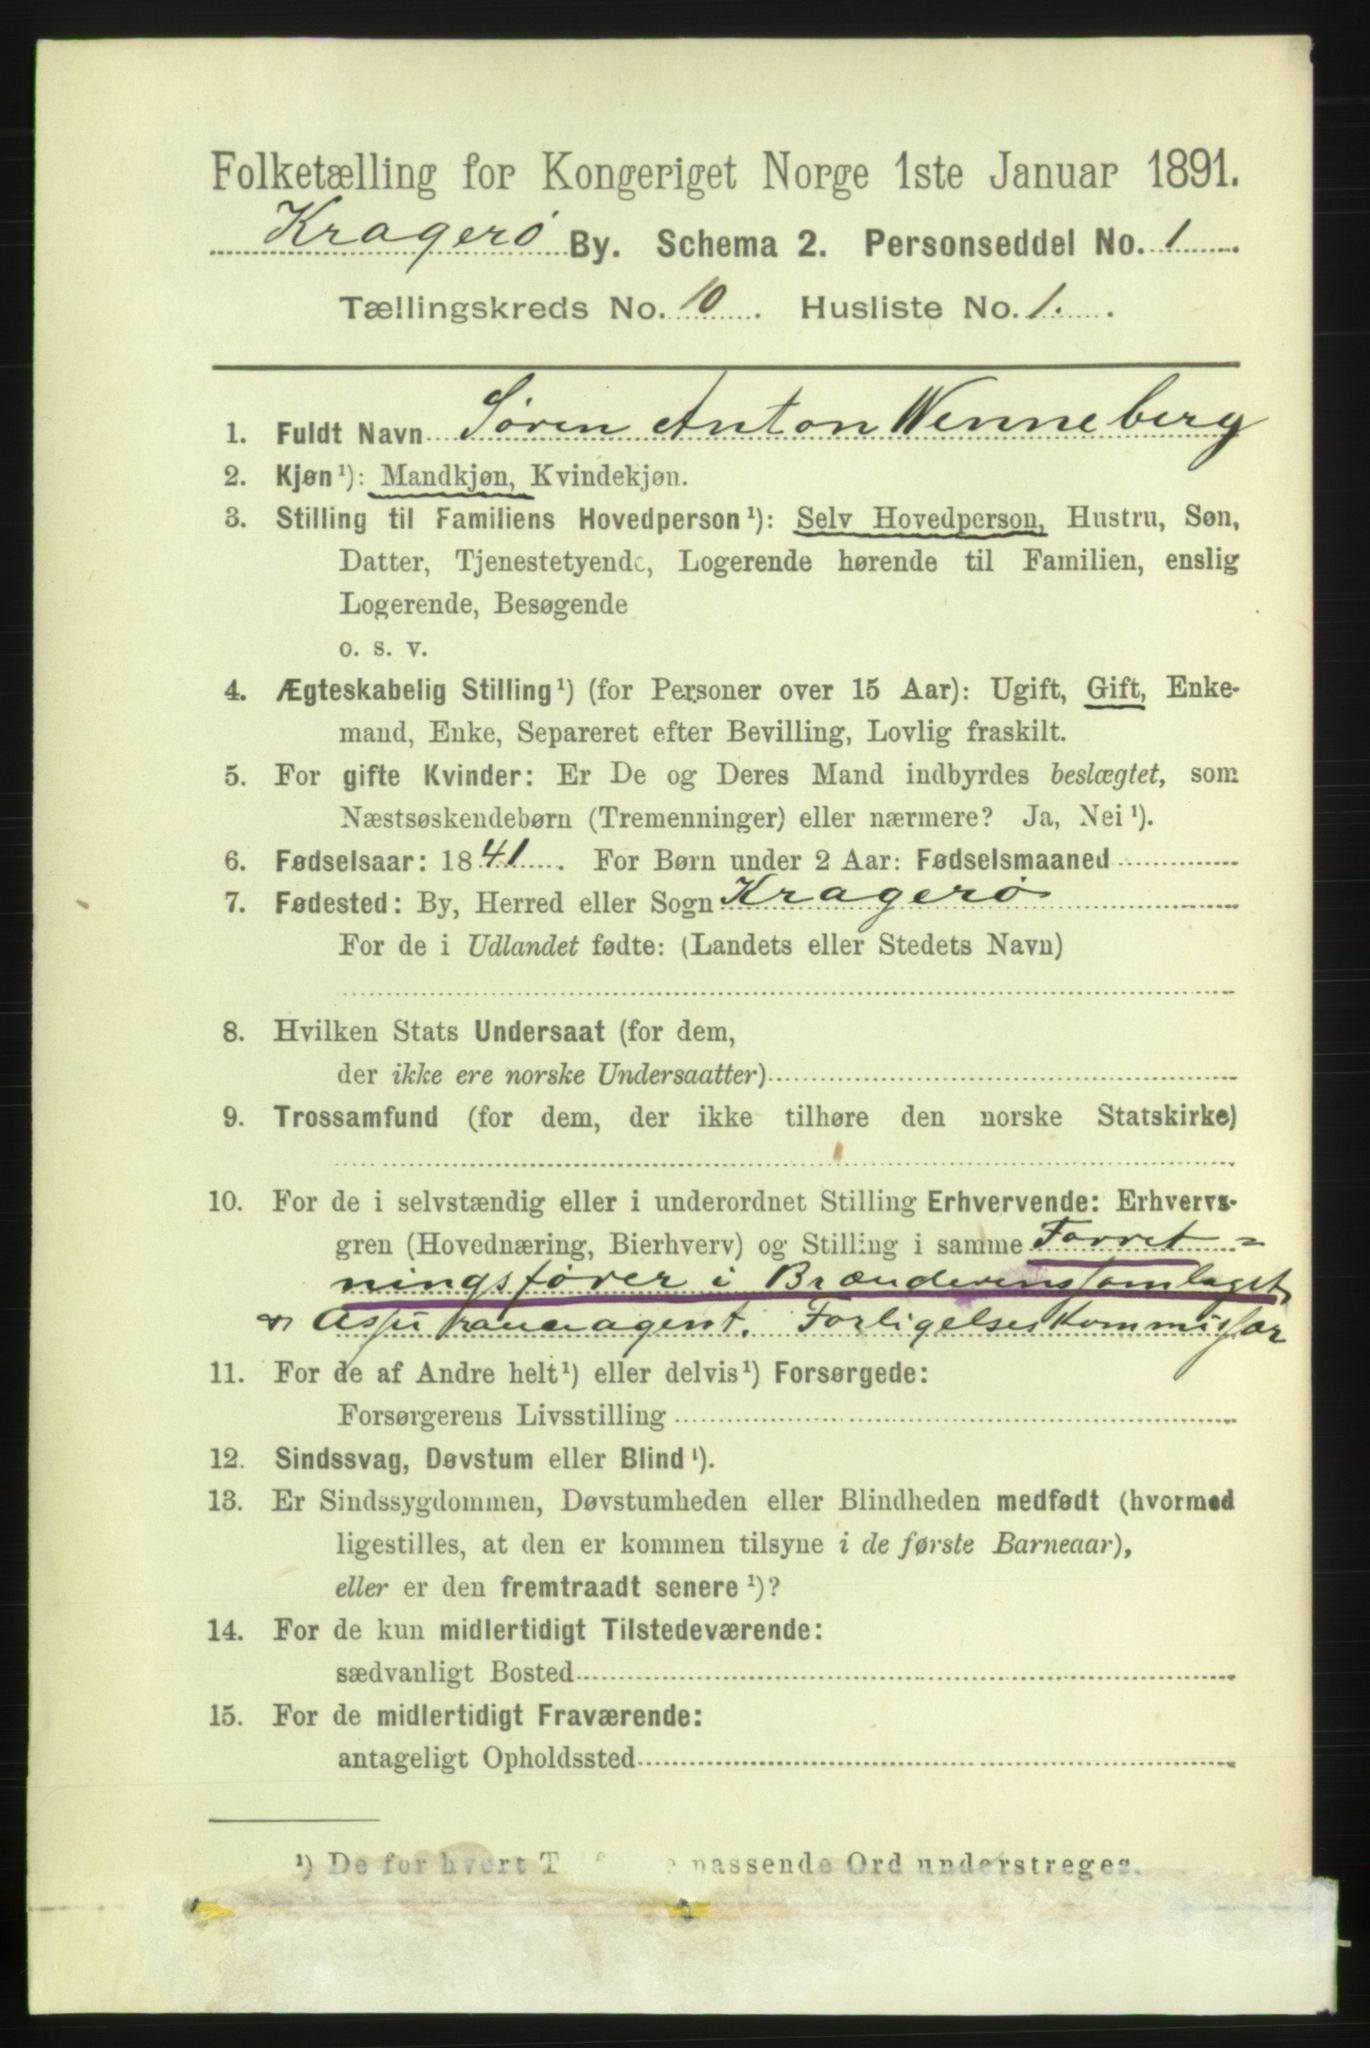 Folketælling for Kongeriget Norge 1ste Januar 1891.
Kragerø By. Schema 2. Personseddel No. 1
Tællingskreds No. 10. Husliste No. 1.
1. Fuldt Navn Søren Anton Wenneberg
2. Kjøn¹): Mandkjøn, Kvindekjøn.
3. Stilling til Familiens Hovedperson¹): Selv Hovedperson, Hustru, Søn,
Datter, Tjenestetyende, Logerende hørende til Familien, enslig
Logerende, Besøgende
o. s. v.
4. Ægteskabelig Stilling¹) (for Personer over 15 Aar): Ugift, Gift, Enke-
mand, Enke, Separeret efter Bevilling, Lovlig fraskilt.
5. For gifte Kvinder: Er De og Deres Mand indbyrdes beslægtet, som
Næstsøskendebørn (Tremenninger) eller nærmere? Ja, Nei¹).
6. Fødselsaar: 1841. For Børn under 2 Aar: Fødselsmaaned
7. Fødested: By, Herred eller Sogn Kragerø
For de i Udlandet fødte: (Landets eller Stedets Navn)
8. Hvilken Stats Undersaat (for dem,
der ikke ere norske Undersaatter)
9. Trossamfund (for dem, der ikke tilhøre den norske Statskirke)
10. For de i selvstændig eller i underordnet Stilling Erhvervende: Erhvervs-
gren (Hovednæring, Bierhverv) og Stilling i samme Forret=
ningsfører i Brænderinssamlaget,
Assuranceagent. Forligelseskommissær
11. For de af Andre helt¹) eller delvis¹) Forsørgede:
Forsørgerens Livsstilling
12. Sindssvag, Døvstum eller Blind¹).
13. Er Sindssygdommen, Døvstumheden eller Blindheden medfødt (hvormed
ligestilles, at den er kommen tilsyne i de første Barneaar),
eller er den fremtraadt senere¹)?
14. For de kun midlertidigt Tilstedeværende:
sædvanligt Bosted
15. For de midlertidigt Fraværende:
antageligt Opholdssted
¹) De for hvert passende Ord understreges.